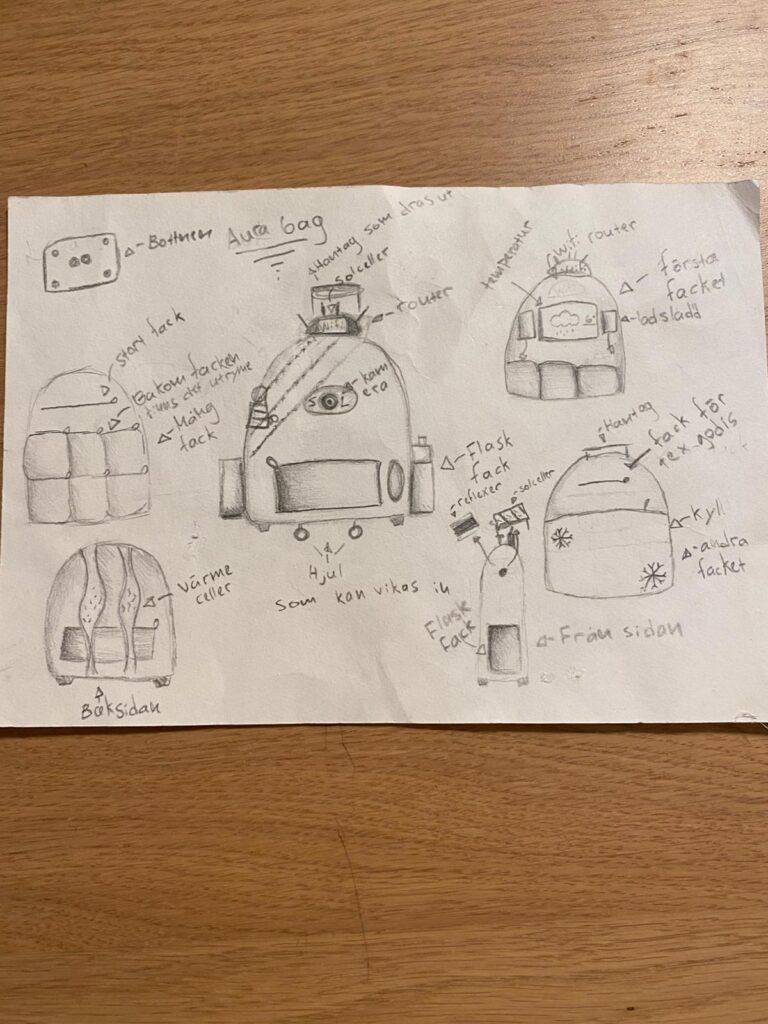 Bottnen
Aura bag
Hantag som dras ut
solceller
router
wifi
kam
era
S L
Flask
fack
Hjul
Som kan vikas in
stort fack
Bakom facken
finns det utryme
Många
fack
värme
celler
Baksidan
temperatur
wifi router
wifi
första
facket
ladsladd
6°
Hantag
fack för
tex godis
kyl
andra
facket
reflexer
solceller
Flask
fack
Från sidan